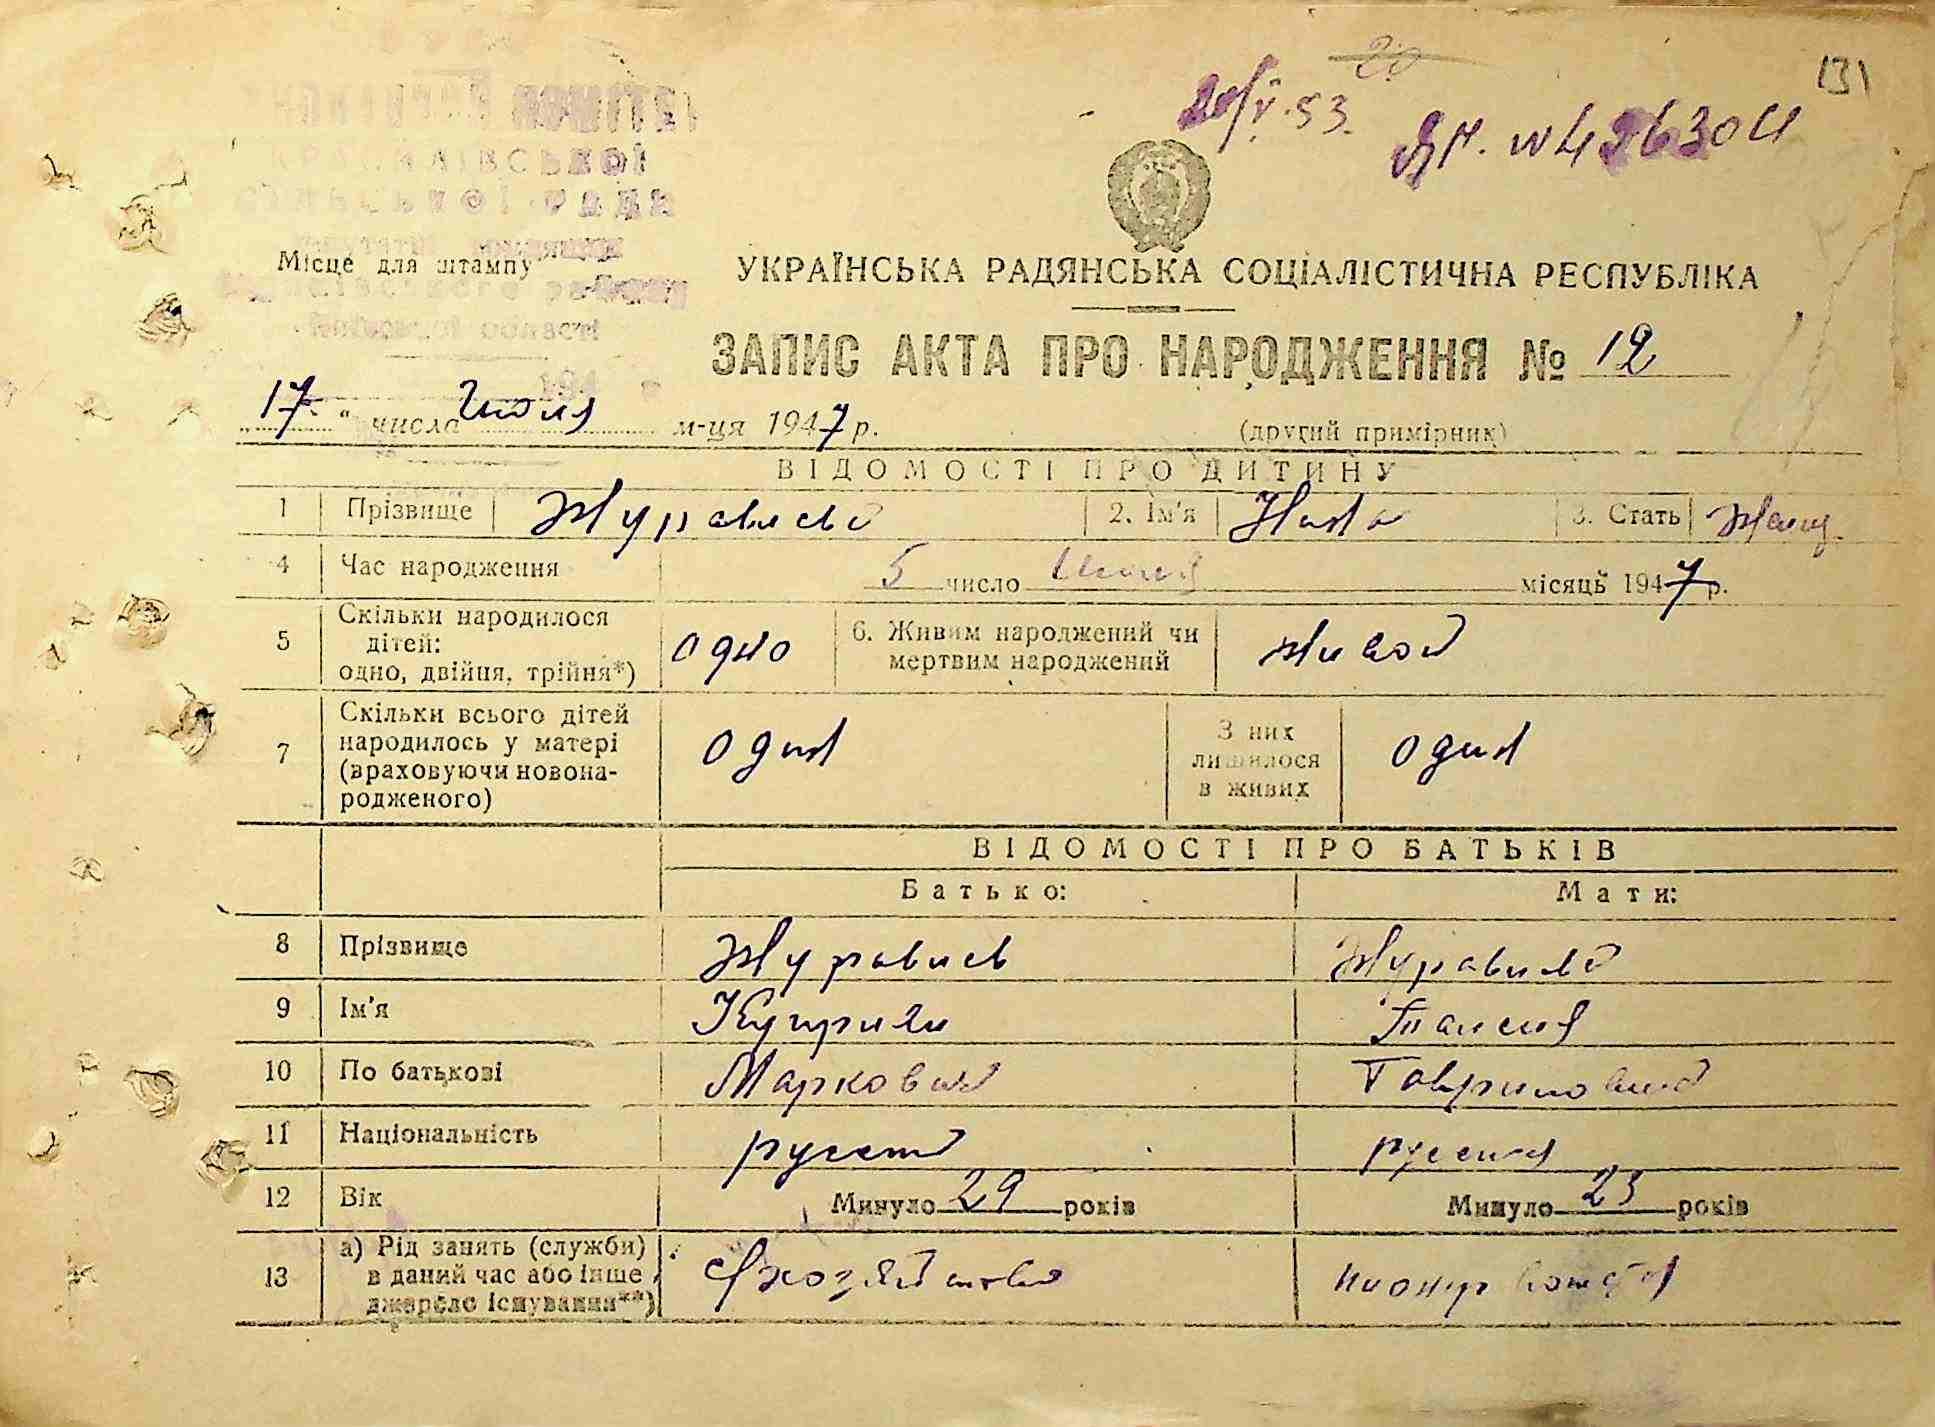 131
20
20/V.53.
КОМІТЕТ
СІЛЬСЬКОЇ РАДИ
Місце для штампу
області
УКРАЇНСЬКА РАДЯНСЬКА СОЦІАЛІСТИЧНА РЕСПУБЛІКА
ЗАПИС АКТА ПРО НАРОДЖЕННЯ № 12
„17“ числа Июля м-ця 1947 р.
(другий примірник)
ВІДОМОСТІ ПРО ДИТИНУ
1 Прізвище Журавлева 2. Ім'я Нина 3. Стать женщ.
4 Час народження 5 число місяць 1947 р.
5 Скільки народилося дітей: одно, двійня, трійня*) одно 6. Живим народжений чи мертвим народжений живой
7 Скільки всього дітей народилось у матері (враховуючи новона-родженого) один З них лишилося в живих один
ВІДОМОСТІ ПРО БАТЬКІВ
Батько: Мати:
8 Прізвище Журавлев Журавлева
9 Ім'я Куприян Таисия
10 По батькові Маркович Гавриловна
11 Національність русский русская
12 Вік Минуло 29 років Минуло 23 років
13 а) Рід занять (служби) в даний час або інше джерело існування**) пионер вожатая